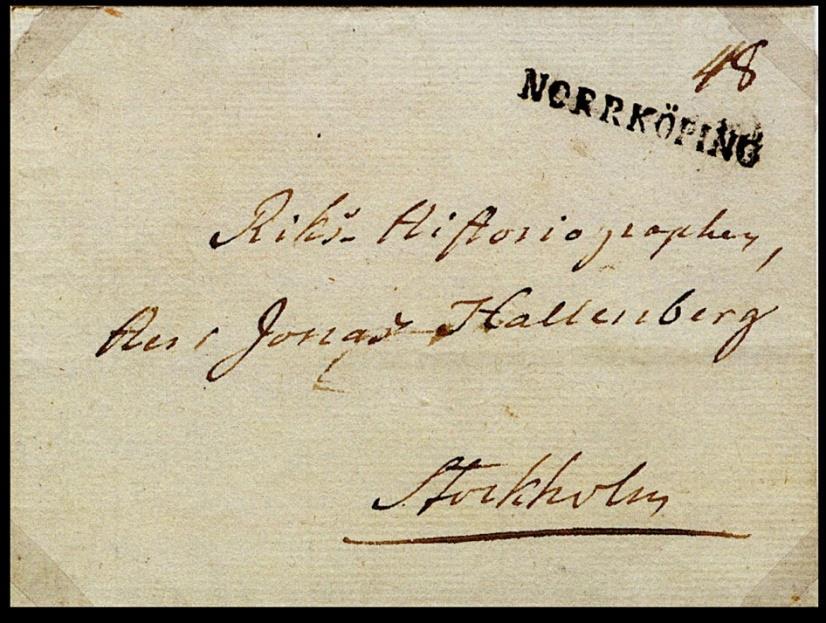 48
NORRKÖPING
Riks Historiographen,
Herr Jonas Hallenberg
Stockholm